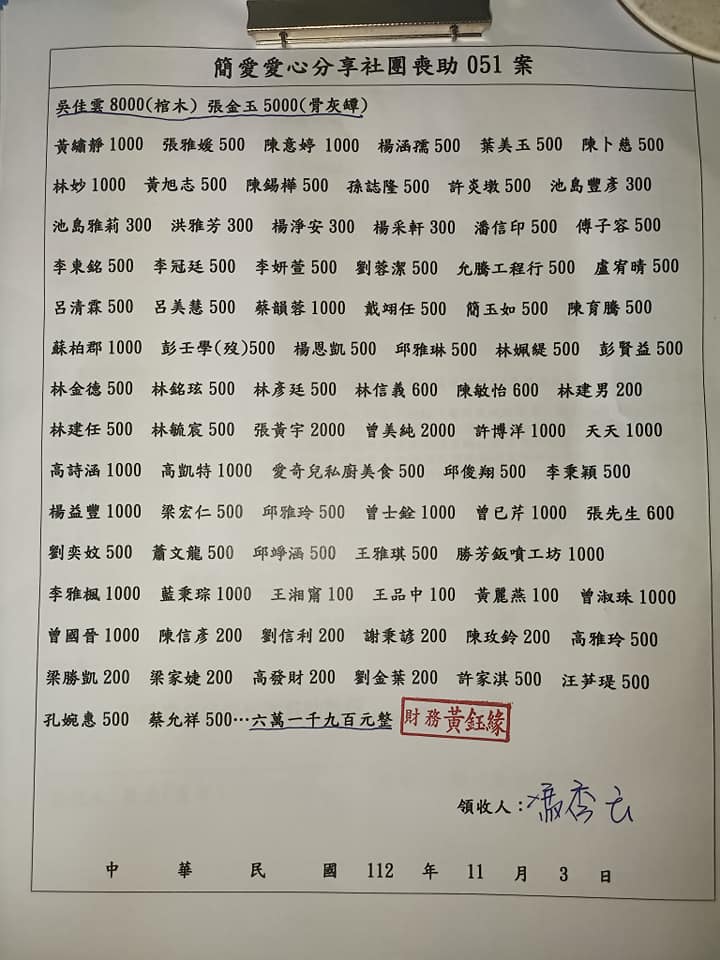 簡愛愛心分享社團喪助 051 案
吳佳雲 8000(棺木) 張金玉 5000(骨灰罈)
黃繡靜 1000 張雅媛 500 陳意婷 1000 楊涵孺 500 葉美玉 500 陳卜慈 500
林妙 1000 黃旭志 500 陳錫樺 500 孫誌隆 500 許炎墩 500 池島豐彥 300
池島雅莉 300 洪雅芳 300 楊淨安 300 楊采軒 300 潘信印 500 傅子容 500
李東銘 500 李冠廷 500 李妍萱 500 劉蓉潔 500 允騰工程行 500 盧宥晴 500
呂清霖 500 呂美慧 500 蔡韻蓉 1000 戴翊任 500 簡玉如 500 陳育騰 500
蘇柏郡 1000 彭壬學(歿)500 楊恩凱 500 邱雅琳 500 林姵緹 500 彭賢益 500
林金德 500 林銘玹 500 林彥廷 500 林信義 600 陳敏怡 600 林建男 200
林建任 500 林毓宸 500 張黃宇 2000 曾美純 2000 許博洋 1000 天天 1000
高詩涵 1000 高凱特 1000 愛奇兒私廚美食 500 邱俊翔 500 李秉穎 500
楊益豐 1000 梁宏仁 500 邱雅玲 500 曾士銓 1000 曾已芹 1000 張先生 600
劉奕妏 500 蕭文龍 500 邱竫涵 500 王雅琪 500 勝芳鈑噴工坊 1000
李雅楓 1000 藍秉琮 1000 王湘甯 100 王品中 100 黃麗燕 100 曾淑珠 1000
曾國晉 1000 陳信彥 200 劉信利 200 謝秉諺 200 陳玫鈴 200 高雅玲 500
梁勝凱 200 梁家婕 200 高發財 200 劉金葉 200 許家淇 500 汪笋瑅 500
孔婉惠 500 蔡允祥 500…六萬一千九百元整 財務黃鈺緣
領收人：
中 華 民 國 112 年 11 月 3 日